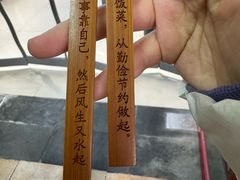 事靠自己，然后风生又水起
饭菜，从勤俭节约做起。